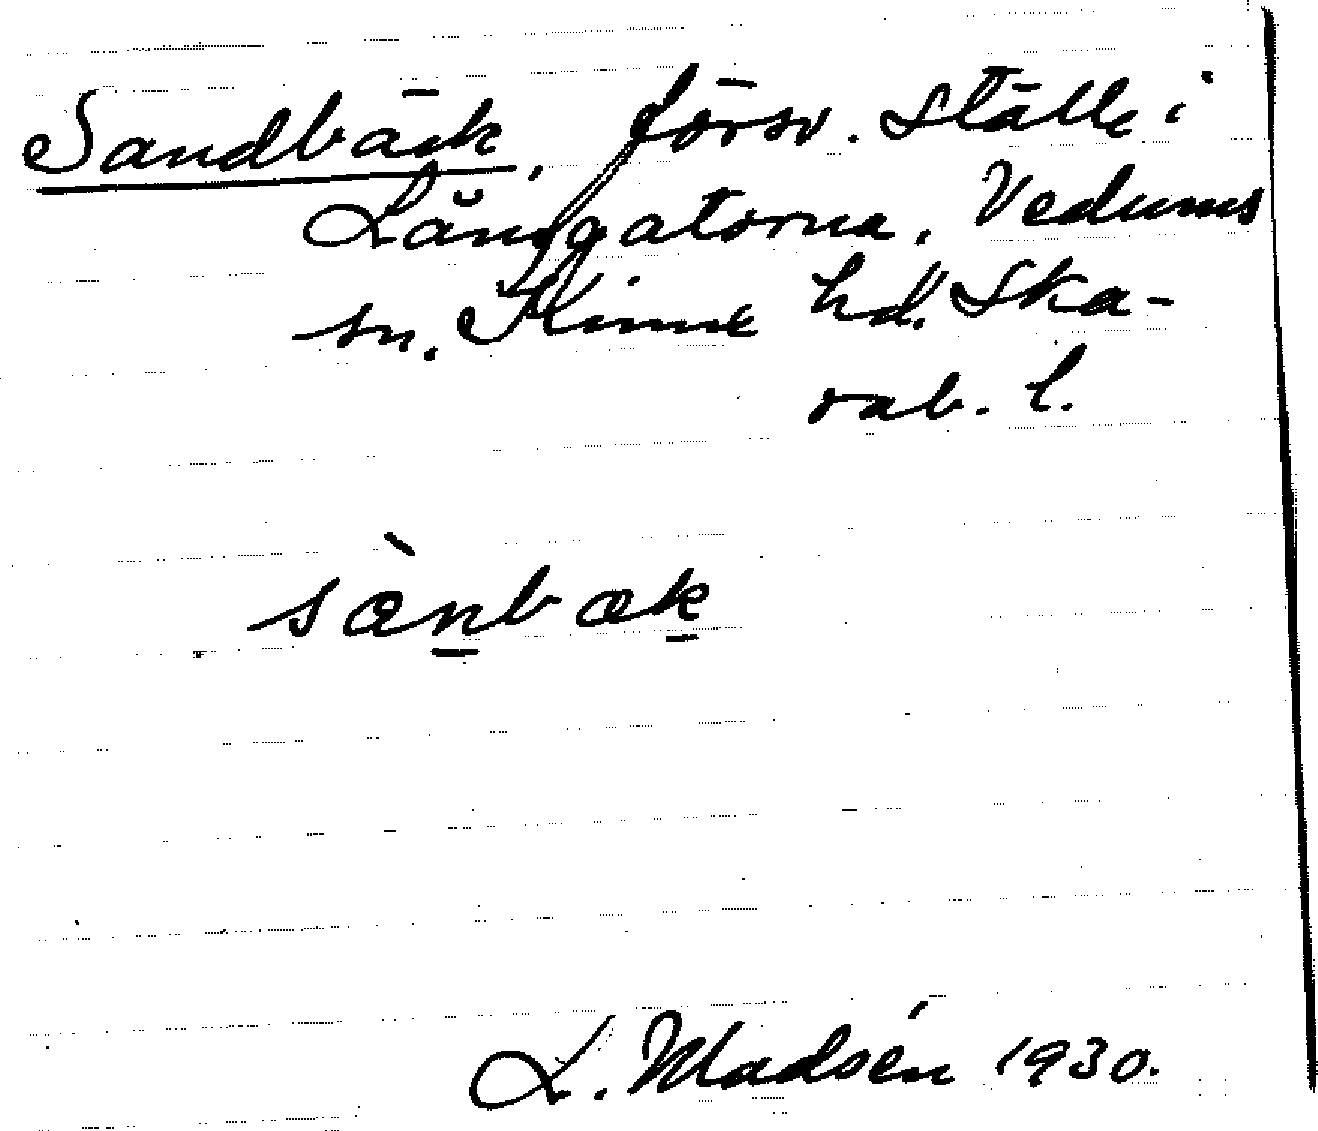 Sandbäck, försv. ställe i
Långatorna, Vedums
sn. Kinne hd. Ska-
rab. l.
sæ̀n̲bæk̲
L. Madsén 1930.